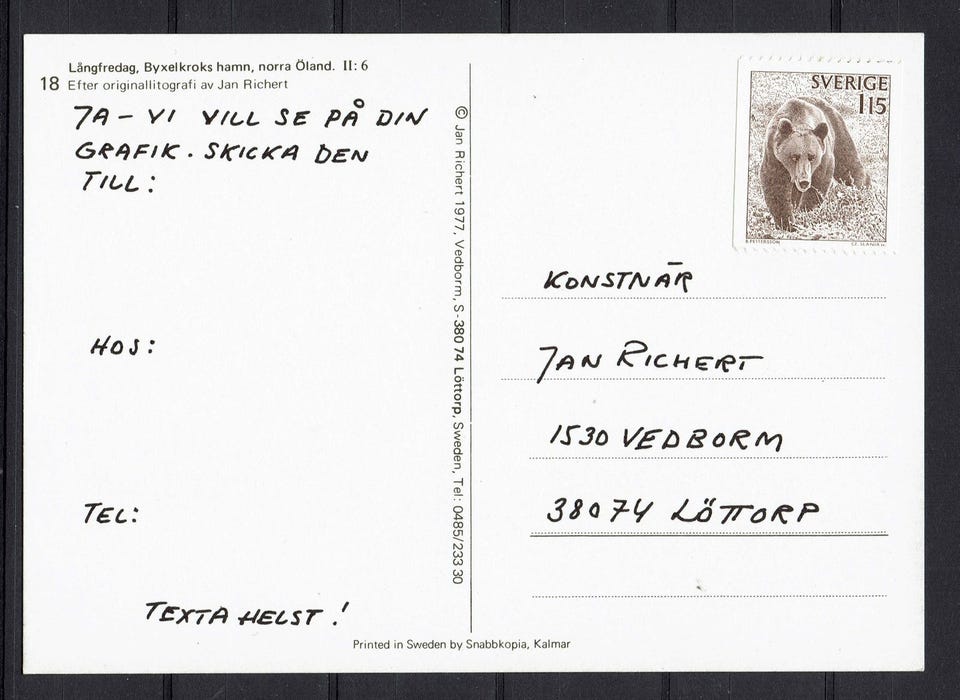 Långfredag, Byxelkroks hamn, norra Öland. II: 6
18 Efter originallitografi av Jan Richert
JA - VI VILL SE PÅ DIN
GRAFIK. SKICKA DEN
TILL:
HOS:
TEL:
TEXTA HELST!
© Jan Richert 1977, Vedborm, S-380 74 Löttorp, Sweden, Tel: 0485/233 30
SVERIGE
115
B. PETTERSSON
CZ. SLANIA sc.
KONSTNÄR
JAN RICHERT
1530 VEDBORM
38074 LÖTTORP
Printed in Sweden by Snabbkopia, Kalmar